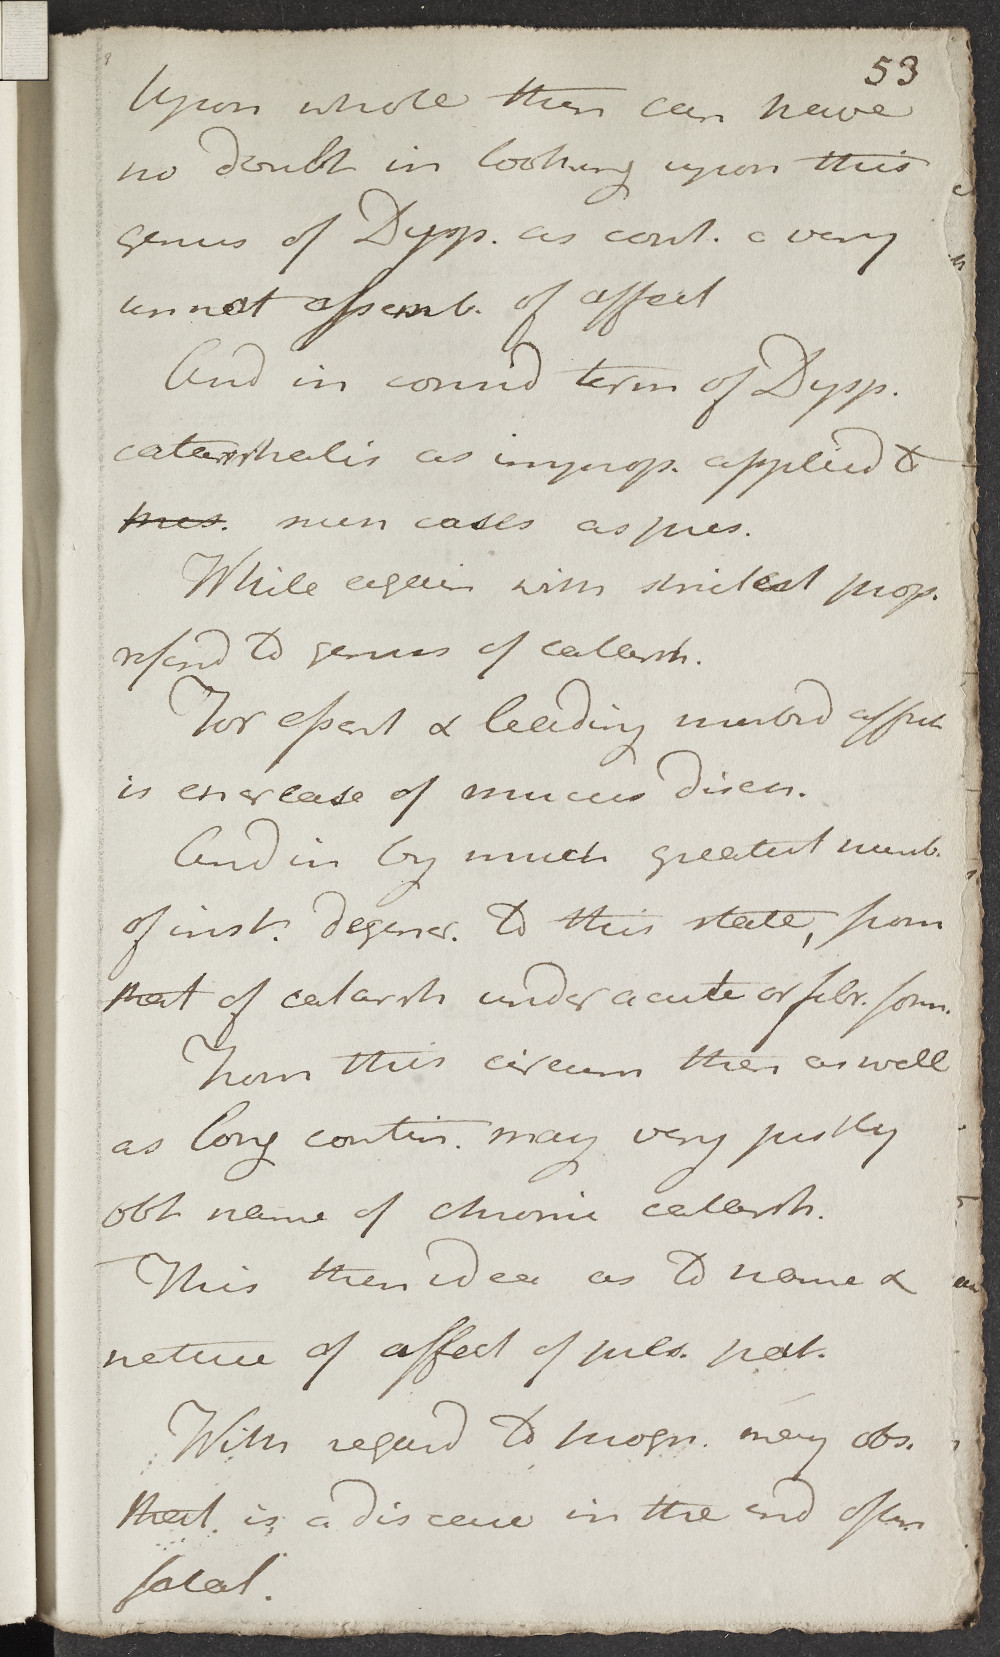 53
Upon whole then can have
no doubt in looking upon this
genus of Dysp. as cont. a very
unnat assemb. of affect
And in cons'd term of Dysp.
catarrhalis as improp. applied to
pres. such cases as pres.
While again with strictest prop.
refer'd to genus of catarrh.
For essent & leading morbid affect
is encrease of mucus disch.
And in by much greatest numb.
of inst. degener. to this state, from
that of catarrh under acute or febr. form.
From this circum then as well
as long contin. may very justly
obt name of chronic catarrh.
This then idea as to name &
nature of affect of pres. pat.
With regard to progn. may obs.
that is a disease in the end often
fatal.